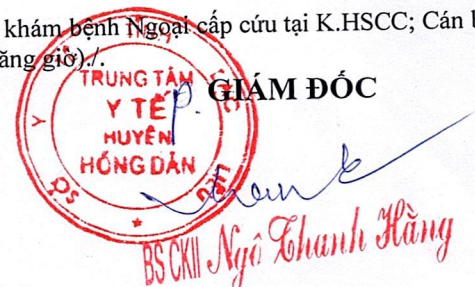 khám bệnh Ngoại cấp cứu tại K.HSCC; Cán b
ăng giờ)./.
P. GIÁM ĐỐC
TRUNG TÂM
Y TẾ
HUYỆN
HỒNG DÂN
SỞ Y TẾ
BS CKII Ngô Thanh Hằng